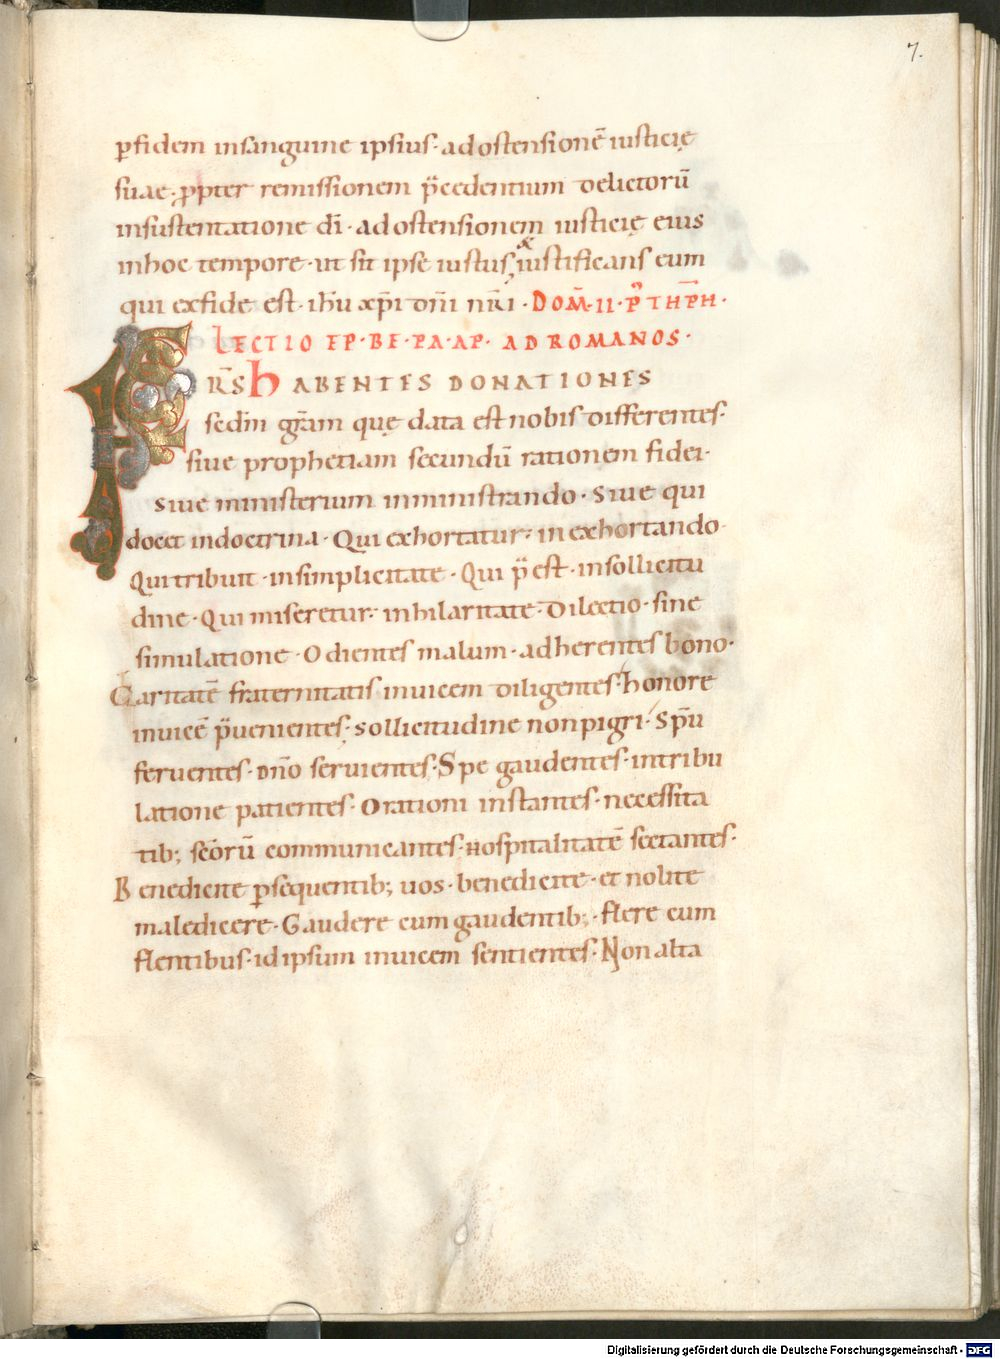 7.
ꝑfidem insanguine ipsius· ad ostensionē iusticię
suae· ꝓpter remissionem p̄cedentium delictorū
insustentatione dī· ad ostensionem iusticię eius
inhoc tempore· ut sit ipse iustus, & iustificans eum
qui exfide est· ihu xpi dn̄i nr̄i· DOM̄·II·P̄ THPH·
LECTIO EP·BE·PA·AP· AD ROMANOS·
FRS HABENTES DONATIONES
sedm̄ grām quę data est nobis differentes·
siue prophetiam secundū rationem fidei·
siue ministerium inministrando· Siue qui
docet indoctrina· Qui exhortatur· in exhortando
Qui tribuit· insimplicitate· Qui p̄est· insollicitu
dine· Qui miseretur· inhilaritate· Dilectio· sine
simulatione· Odientes malum· adherentes bono·
Caritatē fraternitatis inuicem diligentes· honore
inuicē p̄uenientes· sollicitudine non pigri· Sp̄u
feruentes· dn̄o seruientes· Spe gaudentes· intribu
latione patientes· Orationi instantes· necessita
tib; scōrū communicantes· Hospitalitatē sectantes·
Benedicite ꝑsequentib; uos· benedicite· et nolite
maledicere· Gaudere cum gaudentib;· flere cum
flentibus· id ipsum inuicem sentientes· Non alta
Digitalisierung gefördert durch die Deutsche Forschungsgemeinschaft - DFG